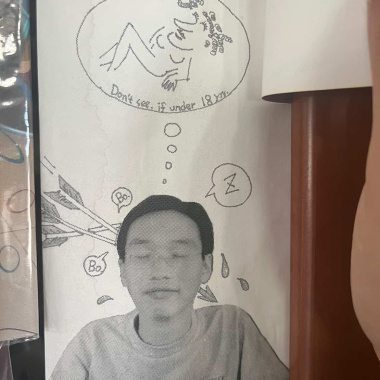 Don't see, if under 18 yr.
Z
Bo
Bo